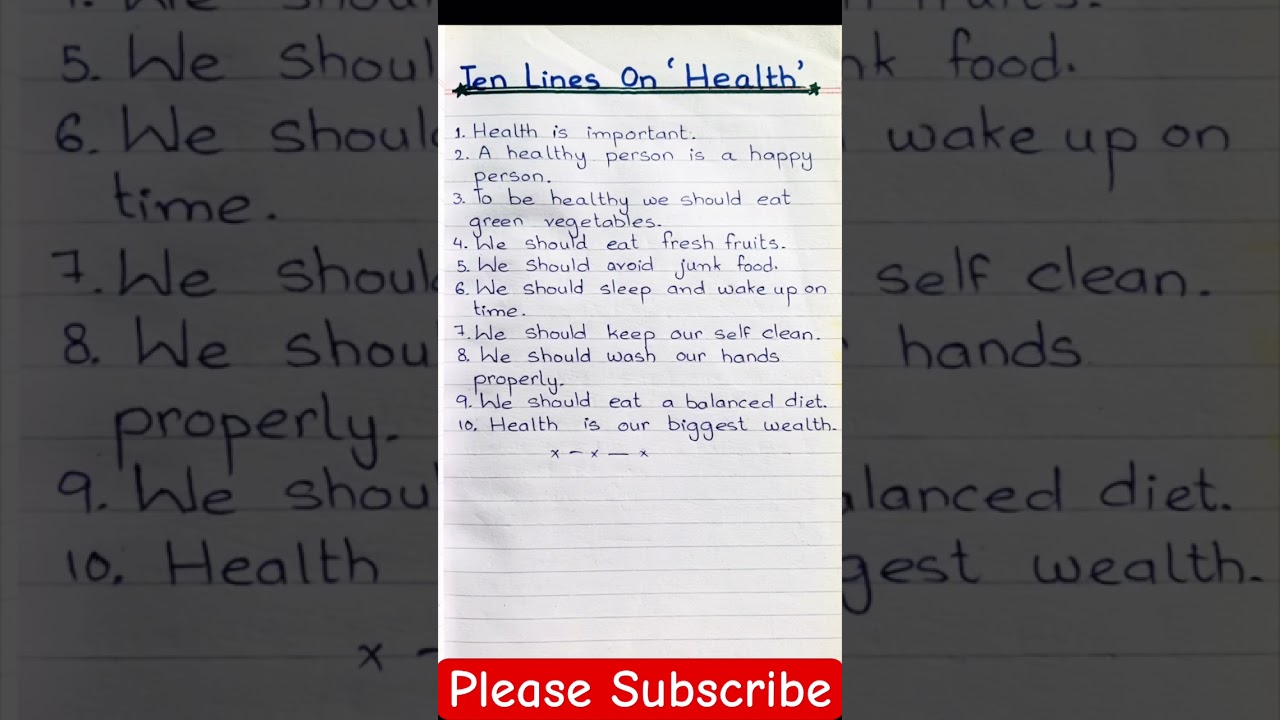 Ten Lines On 'Health'
1. Health is important.
2. A healthy person is a happy
person.
3. To be healthy we should eat
green vegetables.
4. We should eat fresh fruits.
5. We should avoid junk food.
6. We should sleep and wake up on
time.
7. We should keep our self clean.
8. We should wash our hands
properly.
9. We should eat a balanced diet.
10. Health is our biggest wealth.
x - x — x
Please Subscribe